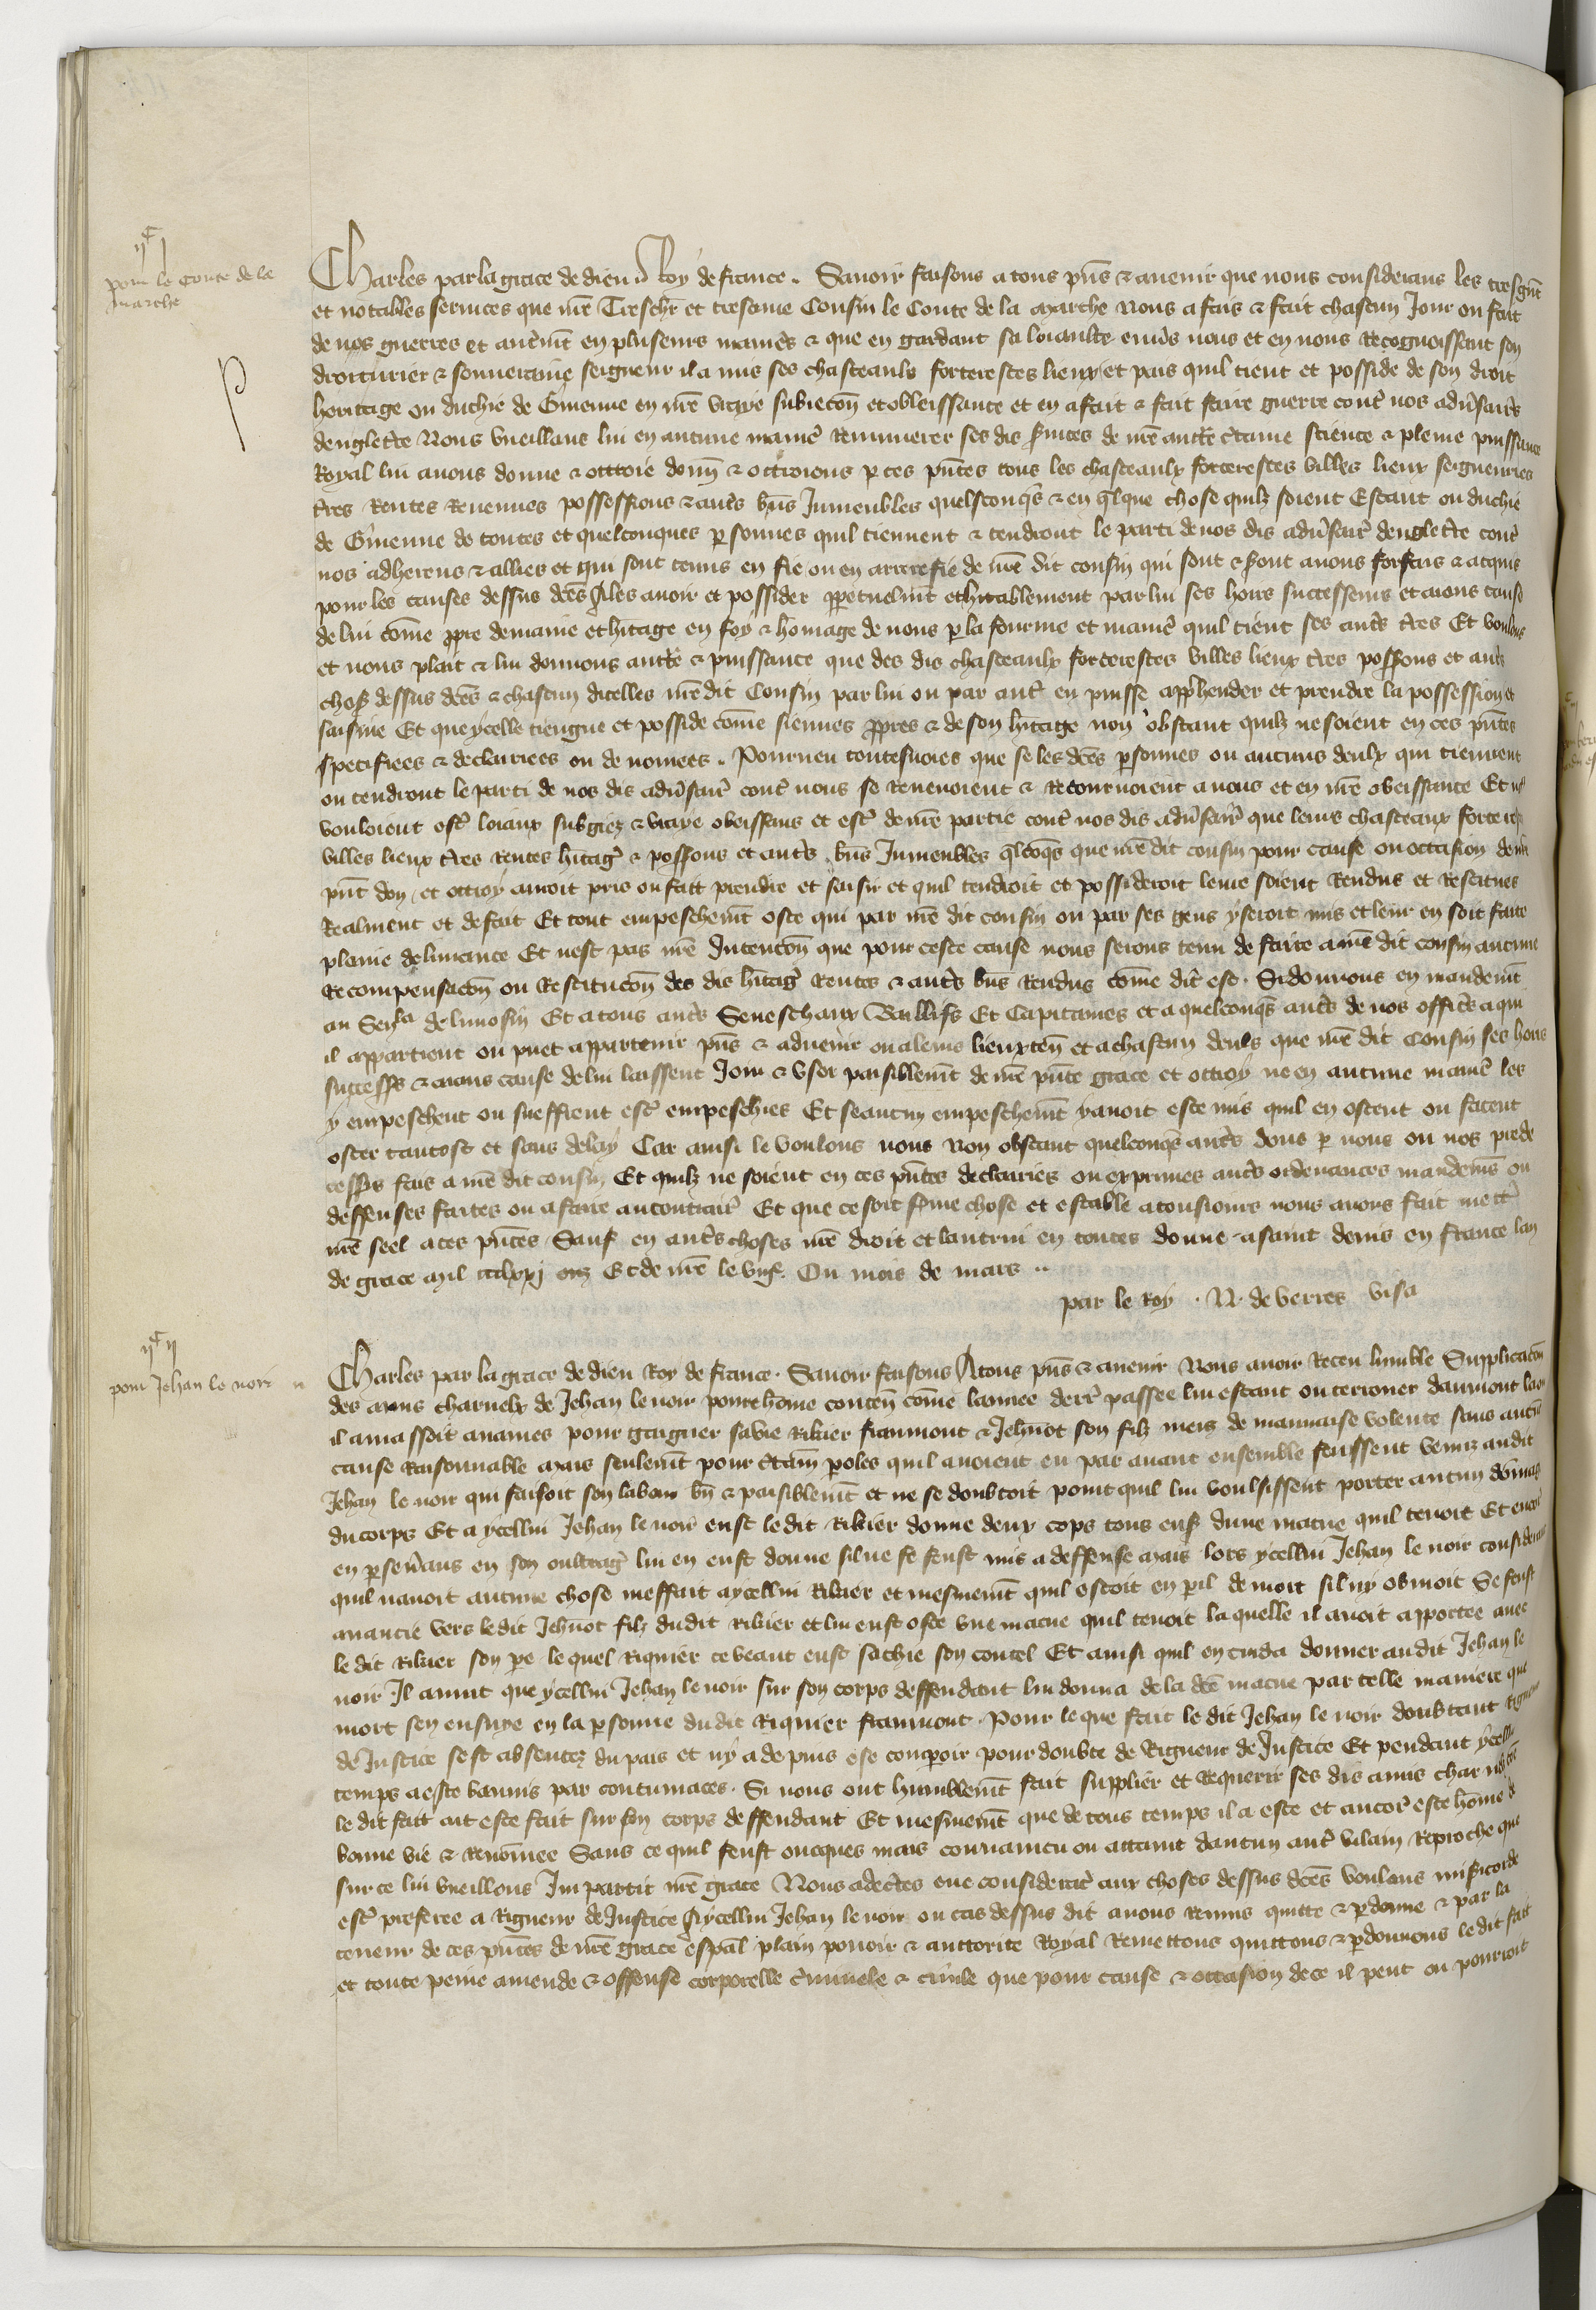 ijc j
pour le conte de la
marche
Charles par la grace de dieu Roy de france. Savoir faisons a tous pñs & avenir que nous considerans les tresgñs
et notables services que nre Treschr et tresame Cousin le Conte de la Marche nous a fais & fait chascun Jour ou fait
de nos guerres et autremt en pluseurs manies & que en gardant sa loiaulte envs nous et en nous Recognoissant son
droicturier & souverain seigneur il a mis ses chasteaulx forteresses lieux et pais quil tient et posside de son droit
heritage ou duchie de Guienne en nre vraye subieccon et obeissance et en a fait & fait faire guerre contr nos advsairs
dengletre Nous vueillans lui en aucune manie Remunerer ses dis svices de nre auctte ctaine science & pleine puissance
Royal lui avons donne & ottroie donn & octroions p ces pntes tous les chasteaulx forteresses villes lieux seigneuries
tres Rentes Revenues possessions & autrs bns Inmeubles quelsconqs & en qlque chose quilz soient Estant ou duchie
de Guienne de toutes et quelconques psonnes quil tiennent & tendront le parti de nos dis advsair dengletre contr
nos adherens & allies et qui sont tenus en fie ou en arrerefie de nre dit cousin qui sont & sont avons forfais & acquis
pour les causes dessus dces A les avoir et possider ppetuelmt et hitablement par lui ses hoirs successeurs et aians cause
de lui come ppre demaine et hitage en foy & homage de nous p la fourme et manie quil tient ses autrs tres Et voulons
et nous plait & lui donnons auctte & puissance que des dis chasteaulx forteresses villes lieux tres possions et autrs
choses dessus dces & chascun dicelles nre dit Cousin par lui ou par autr en puisse apphender et prendre la possession et
saisine Et que ycelle tiengne et posside come siennes ppres & de son hitage non obstant quilz ne soient en ces pntes
specifiees & declairiees ou denomees. Pourveu toutesvoies que se les dces psonnes ou aucuns deulx qui tiennent
ou tendront le parti de nos dis advsair contr nous se Revenoient & Retournoient a nous et en nre obeissance Et
vouloient estr loiaux subgiez & vraye obeissans et estr de nre partie contr nos dis advsair que leurs chasteaux forteres
villes lieux tres Rentes hitag & possions et autrs bns Inmeubles qlcoqs que nre dit cousin pour cause ou occasion de
pnt don et ottroy auroit pris ou fait prendre et saisir et quil tendroit et possideroit leurs soient Rendus et Restitues
Realment et de fait Et tout empeschemt oste qui par nre dit cousin ou par ses gens y seroit mis et leur en soit faite
pleine delivrance Et nest pas nre Intencon que pour ceste cause nous soions tenu de faire a nre dit cousin aucune
Recompensacon ou Restitucon des dis hitag Rentes & autrs bns Rendus come dit est. Si donnons en mandemt
au Senchal de limosin Et a tous autrs Seneschaux Baillifs Et Capitaines et a quelconqs autrs de nos officrs a qui
il appartient ou puet appartenir pns & advenir ou a leurs lieuxten et a chascun deuls que nre dit Cousin ses hoirs
successrs & aians cause de lui laissent Joir & user paisiblemt de nre pnte grace et ottroy ne en aucune manie les
y empeschent ou sueffrent estr empeschies Et se aucun empeschemt y avoit este mis quil en ostent ou facent
oster tantost et sans delay Car ainsi le voulons nous Non obstant quelconqs autrs dons p nous ou nos prede
cessrs fais a nre dit cousin Et quilz ne soient en ces pntes declairies ou exprimes autrs ordenances mandems ou
deffenses faites ou a faire au contrair Et que ce soit ferme chose et estable a tousiours nous avons fait mettr
nre seel a ces pntes Sauf en autrs choses nre droit et lautrui en toutes donne a saint denis en france lan
de grace Mil ccclxxj Et de nre le viije. Ou mois de mars
par le Roy . N. de verres visa
ijc ij
pour Jehan le noir
Charles par la grace de dieu Roy de france. Savoir faisons A tous pns & avenir Nous avoir Receu lumble Supplicacon
des amis charnelx de Jehan le noir povre home conten come lannee derr passee lui estant ou terrouer daumont la ou
il amassoit avaines pour gaigner sa vie Rikier fraumont & Jehnot son filz meus de mauvaise volente sans aucun
cause Raisonnable mais seulemt pour ctain poles quil avoient eu par avant ensemble feussent venuz audit
Jehan le noir qui faisoit son labour bn & paisiblemt et ne se doubtoit point quil lui voulsissent porter aucun domag
du corps Et a ycellui Jehan le noir eust le dit Rikier donne deux cops tous ens dune macue quil tenoit Et encor
en psevrans en son oultrag lui en eust donne sil ne se feust mis a deffense Mais lors ycellui Jehan le noir considerant
quil navoit aucune chose meffait a ycellui Rikier et mesmemt quil estoit en pil de mort sil ny obvioit Se feust
avancie vers le dit Jehnot filz dudit Rikier et lui eust oste une macue quil tenoit la quelle il avoit apportee avec
le dit Rikier son pe le quel Riquier ce veant eust sachie son coutel Et ainsi quil en cuida donner audit Jehan le
noir Il avint que ycellui Jehan le noir sur son corps deffendant lui donna de la dce macue par telle maniere que
mort sen ensuye en la psonne dudit Riquier fraumont. Pour le que fait le dit Jehan le noir doubtant Rigueur
de Justice sest absentez du pais et ny a depuis ose compoir pour doubte de Rigueur de Justice Et pendant ycellui
temps a este bannis par contumaces. Si nous ont humblemt fait supplier et Requerir ses dis amis char
le dit fait ait este fait sur son corps deffendant Et mesmemt que de tous temps il a este et ancor est home de
bonne vie & renomee Sans ce quil feust oncques mais convaincu ou attaint daucun autr vilain Reproche que
sur ce lui vueillons Impartir nre grace Nous adectes eue consideracon aux choses dessus dces voulans misicorde
estr preferee a Rigueur de Justice A ycellui Jehan le noir ou cas dessus dit avons Remis quitte & pdonne & par la
teneur de ces pntes de nre grace espal plain povoir & auctorite Royal Remettons quittons & pdonnons le dit fait
et toute peine amende & offense corporelle cminele & civile que pour cause & occasion de ce il peut ou pourroit